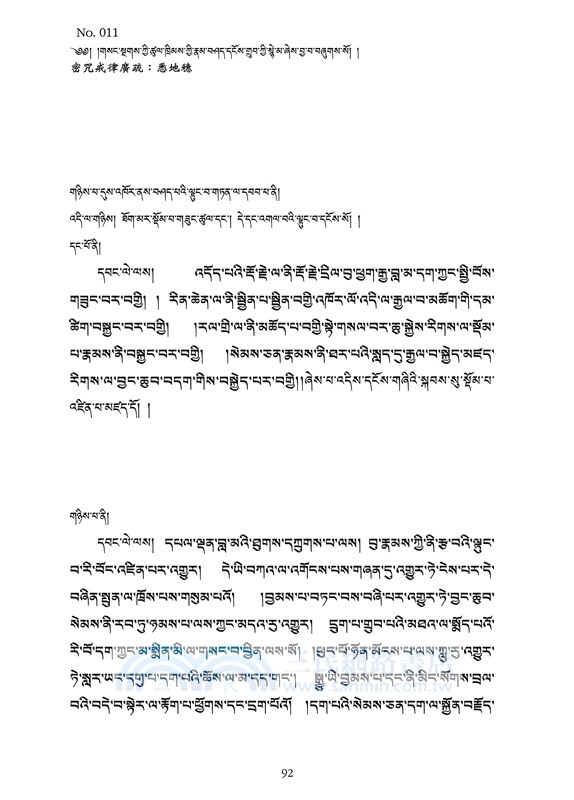 No. 011
༄༅། །གསང་སྔགས་ཀྱི་ཚུལ་ཁྲིམས་ཀྱི་རྣམ་བཤད་དངོས་གྲུབ་ཀྱི་སྙེ་མ་ཞེས་བྱ་བ་བཞུགས་སོ། །
密咒戒律廣疏：悉地穗
གཉིས་པ་དུས་འཁོར་ནས་བཤད་པའི་ལྟུང་བ་གཏན་ལ་དབབ་པ་ནི།
འདི་ལ་གཉིས། ཐོག་མར་སྡོམ་པ་གཟུང་ཚུལ་དང་། དེ་དང་འགལ་བའི་ལྟུང་བ་དངོས་སོ། །
དང་པོ་ནི།
དབང་ལེ་ལས། འདོད་པའི་རྡོ་རྗེ་ལ་ནི་རྡོ་རྗེ་དྲིལ་བུ་ཕྱག་རྒྱ་བླ་མ་དག་ཀྱང་སྤྱི་བོས་
གཟུང་བར་བགྱི། ། རིན་ཆེན་ལ་ནི་སྦྱིན་པ་སྦྱིན་བགྱི་འཁོར་ལོ་འདི་ལ་རྒྱལ་བ་མཆོག་གི་དམ་
ཚིག་བསྐྱང་བར་བགྱི། །རལ་གྲི་ལ་ནི་མཆོད་པ་བགྱི་སྟེ་གསལ་བར་ཆུ་སྐྱེས་རིགས་ལ་སྡོམ་
པ་རྣམས་ནི་བསྐྱང་བར་བགྱི། །སེམས་ཅན་རྣམས་ནི་ཐར་པའི་སླད་དུ་རྒྱལ་བ་སྐྱེད་མཛད་
རིགས་ལ་བྱང་ཆུབ་བདག་གིས་བསྐྱེད་པར་བགྱི།།ཞེས་པ་འདིས་དངོས་གཞིའི་སྐབས་སུ་སྡོམ་པ་
འཛིན་པ་མཛད་དོ། །
གཉིས་པ་ནི།
དབང་ལེ་ལས། དཔལ་ལྡན་བླ་མའི་ཐུགས་དཀྲུགས་པ་ལས། བུ་རྣམས་ཀྱི་ནི་རྩ་བའི་ལྟུང་
བ་རི་བོང་འཛིན་པར་འགྱུར། དེ་ཡི་བཀའ་ལ་འགོངས་པས་གཞན་དུ་འགྱུར་ཏེ་ངེས་པར་དེ་
བཞིན་སྤུན་ལ་ཁྲོས་པས་གསུམ་པའོ། །བྱམས་པ་བཏང་བས་བཞི་པར་འགྱུར་ཏེ་བྱང་ཆུབ་
སེམས་ནི་རབ་ཏུ་ཉམས་པ་ལས་ཀྱང་མདའ་རུ་འགྱུར། དྲུག་པ་གྲུབ་པའི་མཐའ་ལ་སྨོད་པའོ་
རི་བོ་དག་ཀྱང་མ་སྨིན་མི་ལ་གསང་བ་བྱིན་ལས་སོ། །ཕུང་པོ་ཉོན་མོངས་པ་ལས་ཀླུ་རུ་འགྱུར་
ཏེ་སླར་ཡང་དགུ་པ་དག་པའི་ཆོས་ལ་མ་དད་གང་། སྒྱུ་ཡི་བྱམས་པ་དང་ནི་མིང་སོགས་བྲལ་
བའི་བདེ་བ་སྟེར་ལ་རྟོག་པ་ཕྱོགས་དང་དྲག་པོའོ། །དག་པའི་སེམས་ཅན་དག་ལ་སྐྱོན་བརྗོད་
92